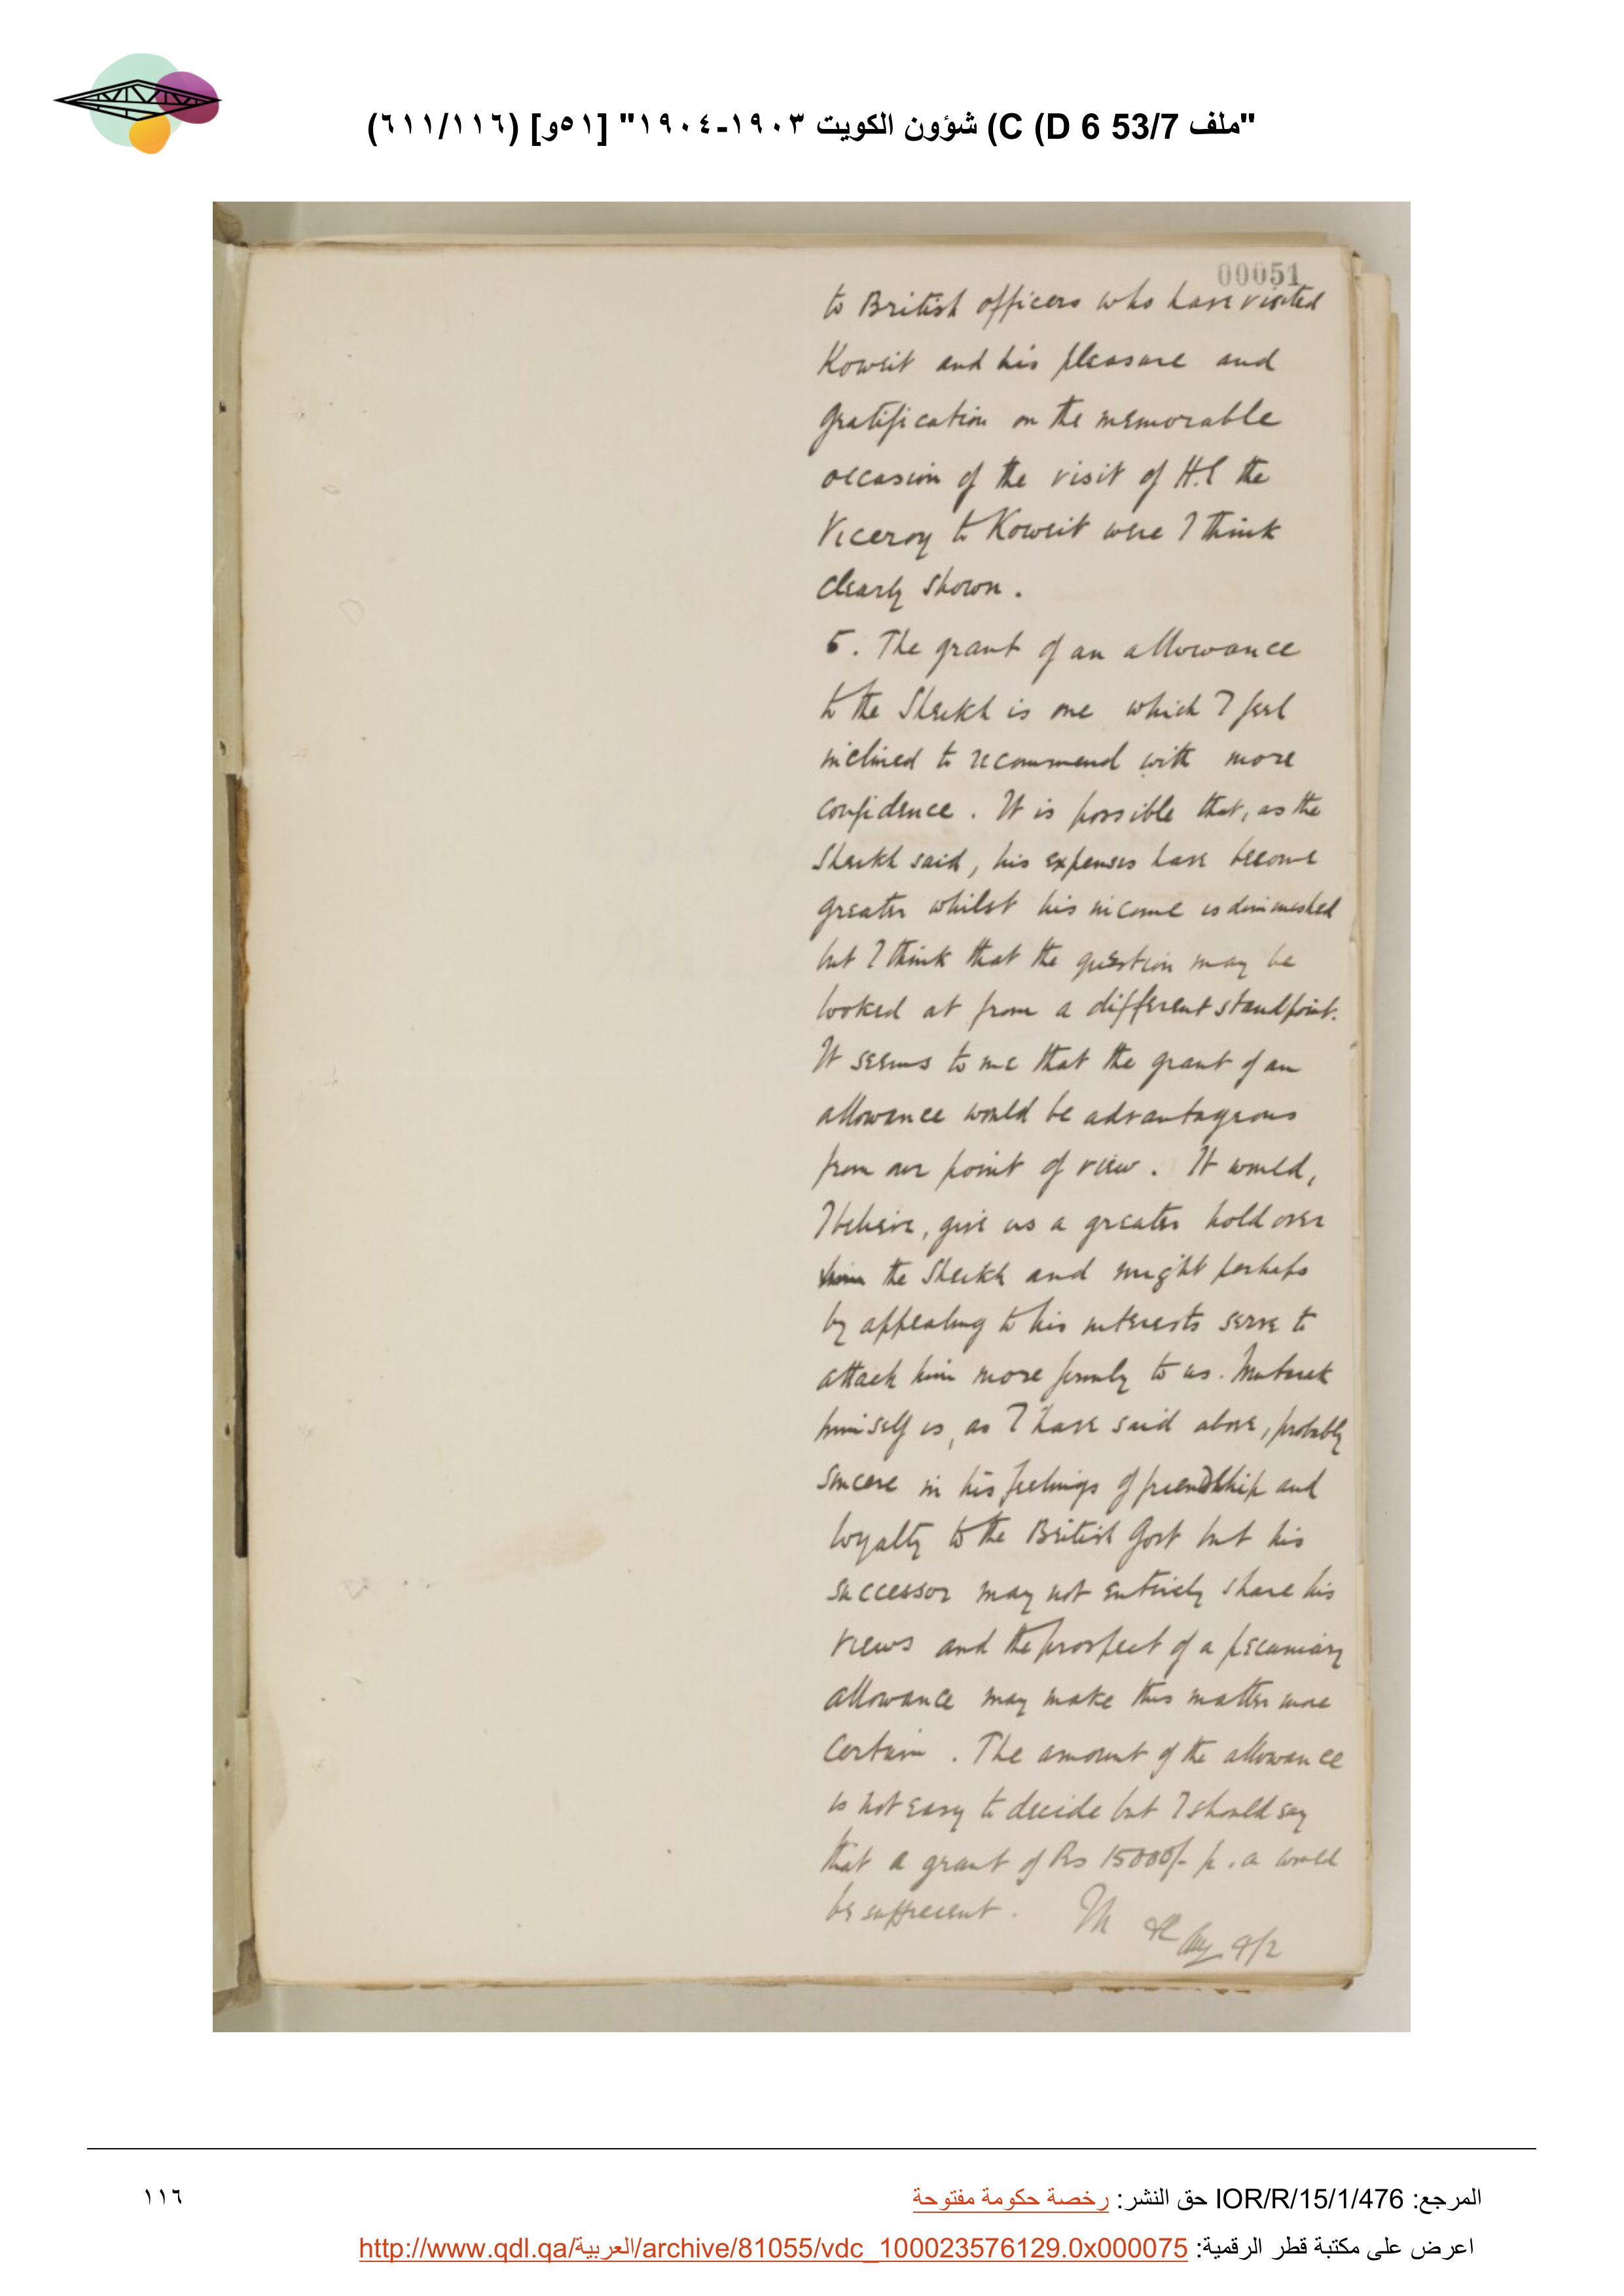 "ملف 53/7 C (D 6) شؤون الكويت ١٩٠٣-١٩٠٤" [٥١و] (٦١١/١١٦)
00051
to British officers who have visited
Koweit and his pleasure and
gratification on the memorable
occasion of the visit of H.E the
Viceroy to Koweit were I think
clearly shown.
5. The grant of an allowance
to the Sheikh is one which I feel
inclined to recommend with more
confidence. It is possible that, as the
Sheikh said, his expenses have become
greater whilst his income is diminished
but I think that the question may be
looked at from a different standpoint.
It seems to me that the grant of an
allowance would be advantageous
from our point of view. It would,
I believe, give us a greater hold over
him the Sheikh and might perhaps
by appealing to his interests serve to
attach him more firmly to us. Mubarak
himself is, as I have said above, probably
sincere in his feelings of friendship and
loyalty to the British Govt but his
successor may not entirely share his
views and the prospect of a pecuniary
allowance may make this matter more
certain. The amount of the allowance
is not easy to decide but I should say
that a grant of Rs 15000/- p.a would
be sufficient.
المرجع: IOR/R/15/1/476 حق النشر: رخصة حكومة مفتوحة
١١٦
اعرض على مكتبة قطر الرقمية: http://www.qdl.qa/العربية/archive/81055/vdc_100023576129.0x000075